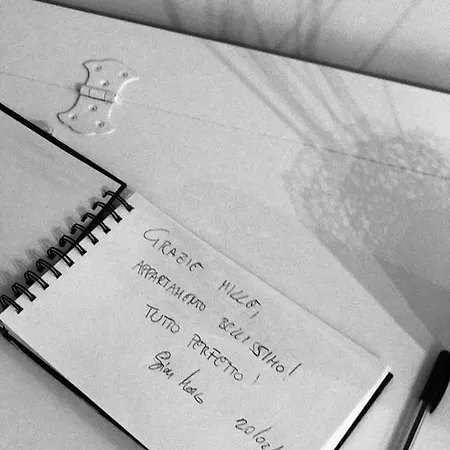 GRAZIE MILLE,
APPARTAMENTO BELLISSIMO!
TUTTO PERFETTO!
20/02/